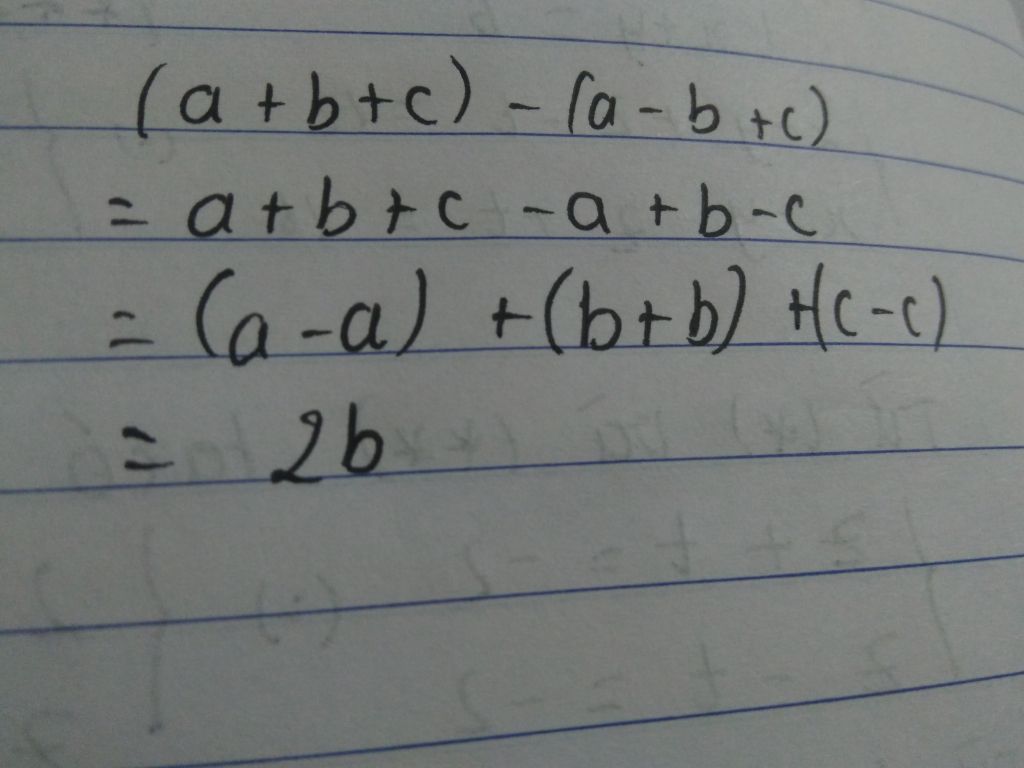 (a + b + c) - (a - b + c)
= a + b + c - a + b - c
= (a - a) + (b + b) + (c - c)
= 2b